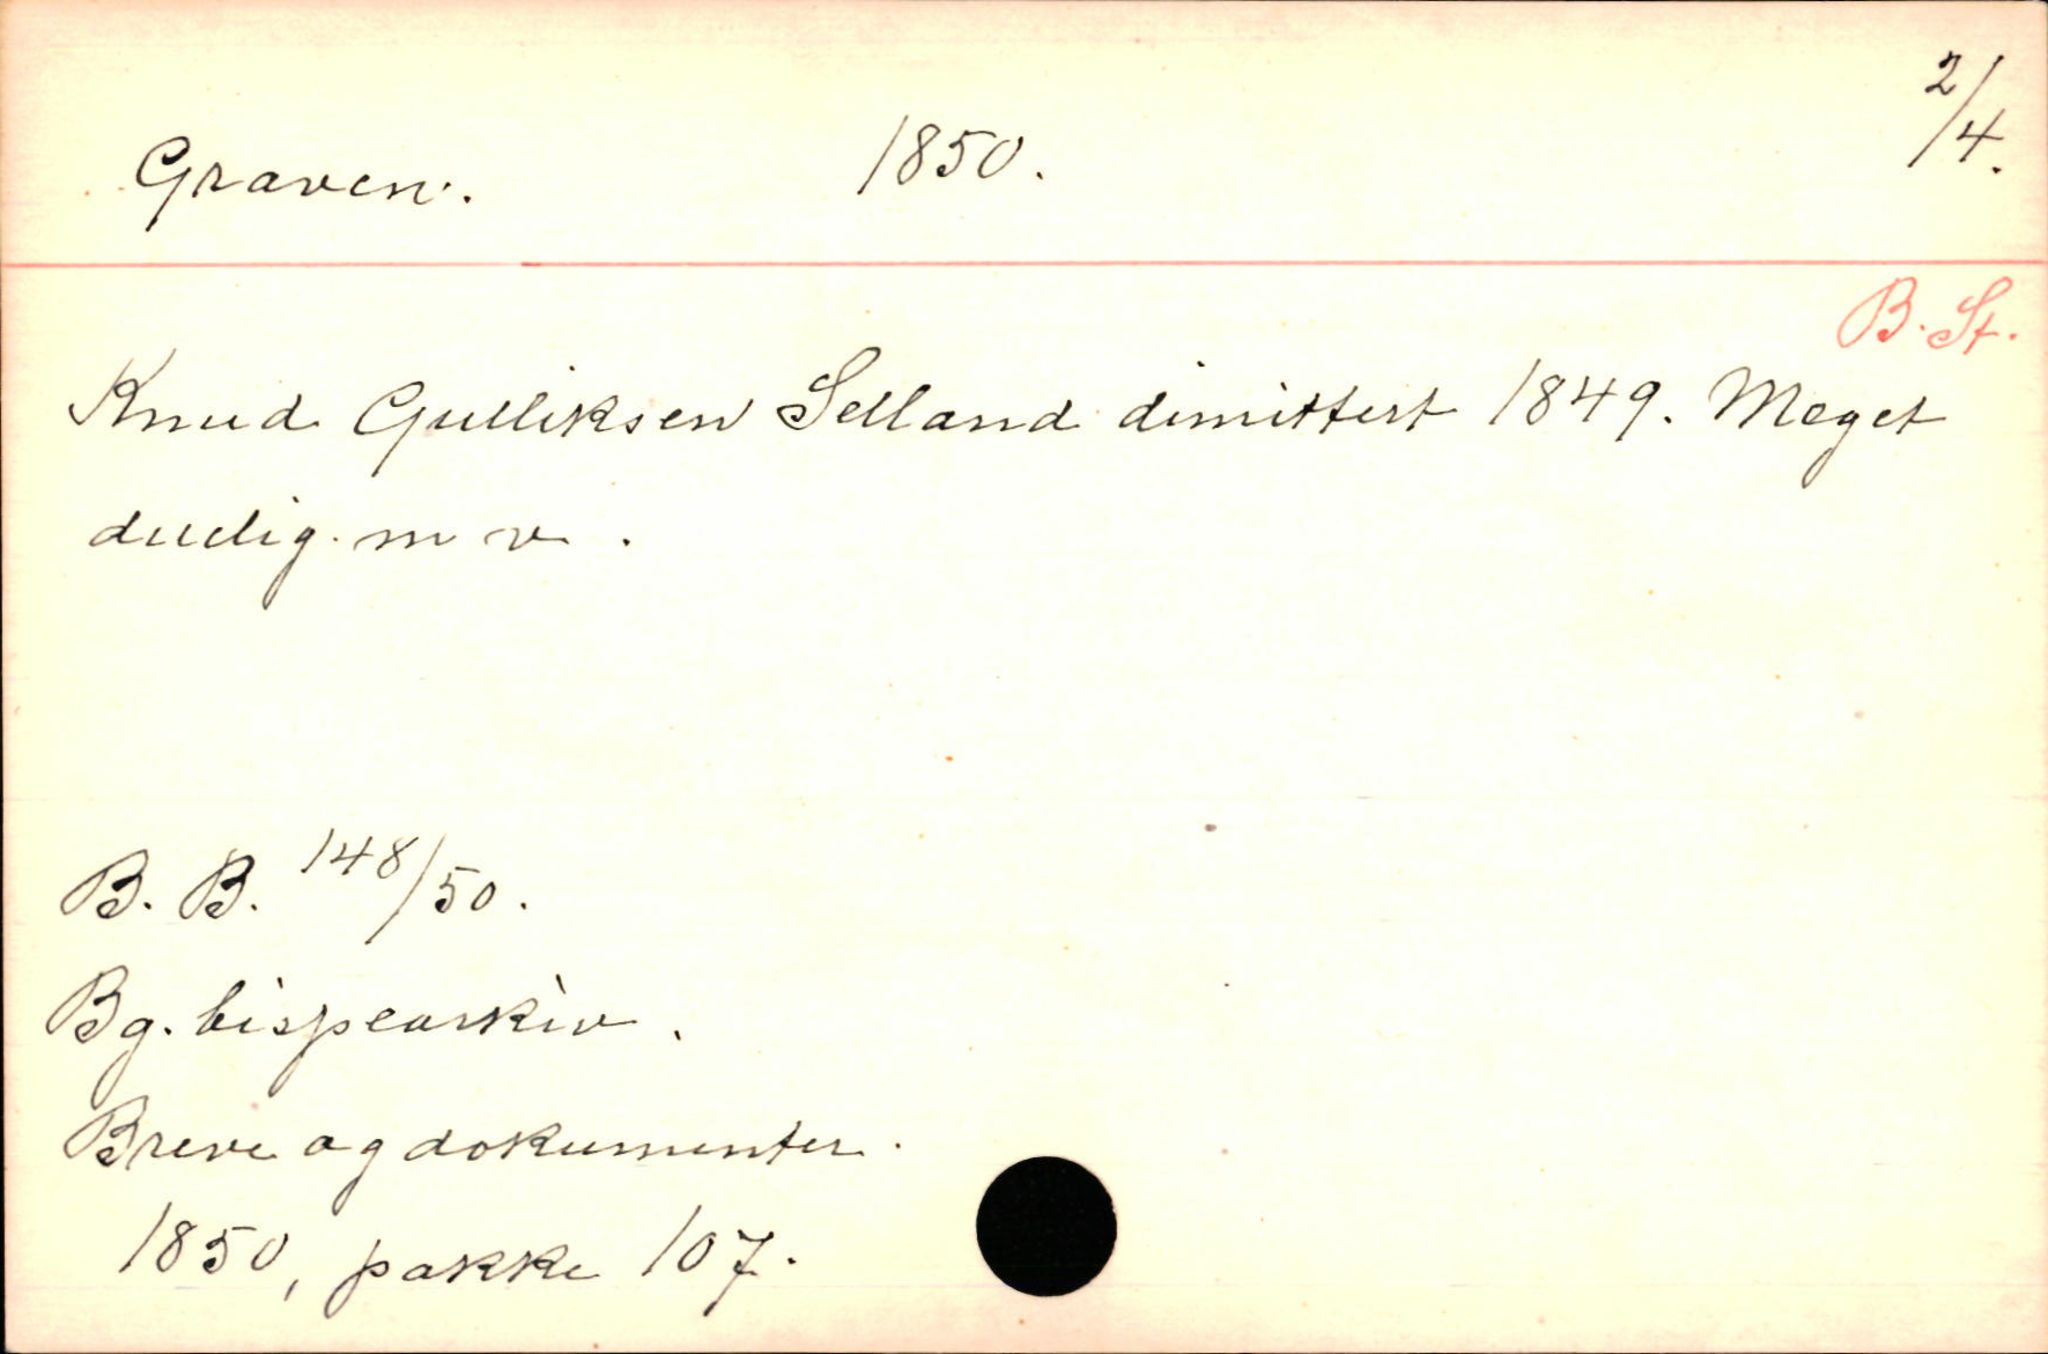 Graven. 1850. 2/4.
B. St.
Knud Gulliksen Selland dimittert 1849. Meget
duelig m v .
B. B. 148/50.
Bg. bispearkiv.
Breve og dokumenter.
1850, pakke 107.